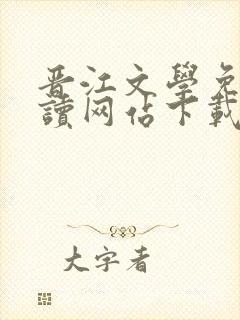 晋江文學免
讀网佔下載
大字者